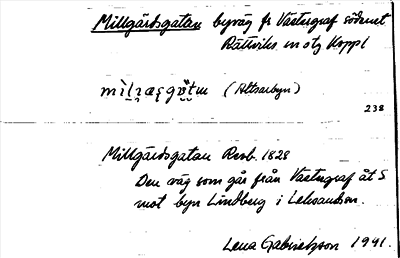 Millgårdsgatan byväg fr Västergraf söderut
Rättviks
(Altsarbyn)
238
Millgårdsgatan Resb. 1828
Den väg som går från Västergraf åt S
mot byn Lindberg i Leksandsn.
Lena Gabrielsson 1941.